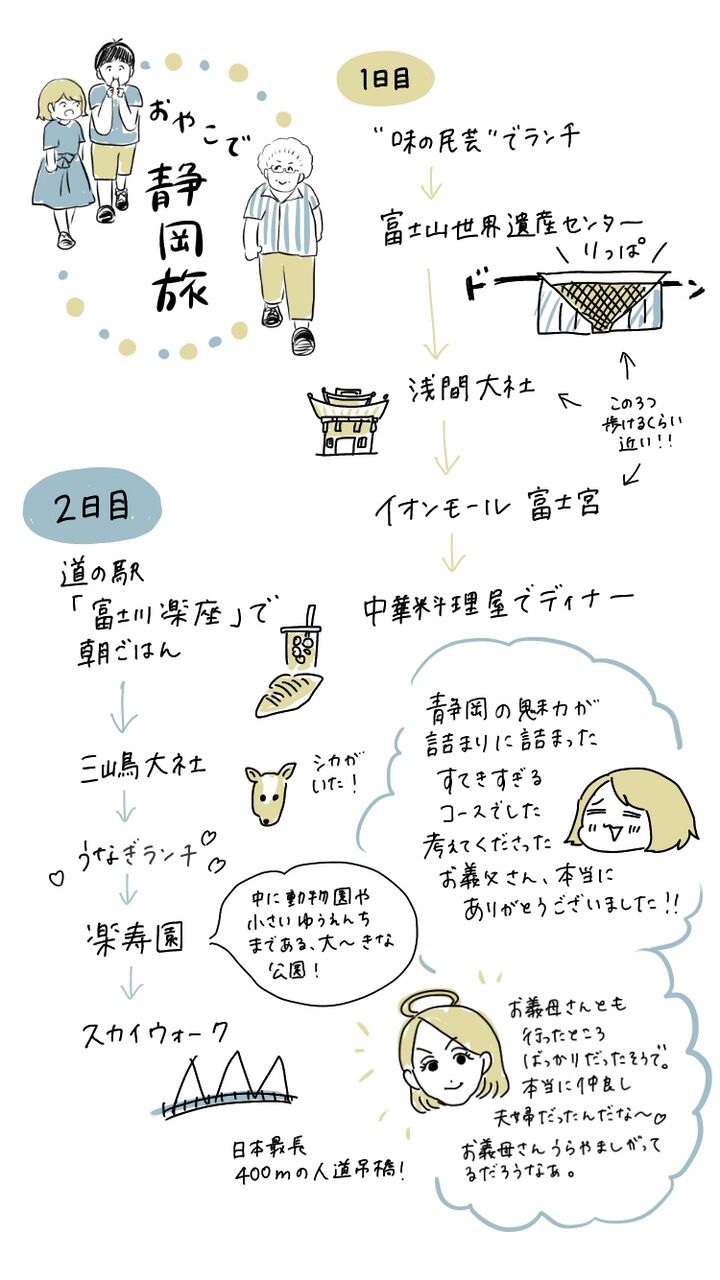 おやこで
静岡旅
1日目
"味の民芸"でランチ
富士山世界遺産センター
りっぱ
ドーーン
浅間大社
この3つ
歩けるくらい
近い!!
イオンモール 富士宮
中華料理屋でディナー
2日目
道の駅
「富士川楽座」で
朝ごはん
三島大社
シカが
いた!
うなぎランチ
楽寿園
中に動物園や
小さいゆうえんち
まである、大〜きな
公園!
スカイウォーク
日本最長
400mの人道吊橋!
静岡の魅力が
詰まりに詰まった
すてきすぎる
コースでした
考えてくださった
お義父さん、本当に
ありがとうございました!!
お義母さんとも
行ったところ
ばっかりだったそうで。
本当に仲良し
夫婦だったんだな〜♡
お義母さんうらやましがって
るだろうなあ。